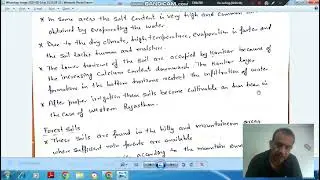 * In some areas the salt content is very high and common salt is
obtained by evaporating the water.
* Due to the dry climate, high temperature, evaporation is faster and
the soil lacks humus and moisture.
* The lower horizons of the soil are occupied by Kankar because of
the increasing Calcium content downwards. The Kankar layer
formation in the bottom horizons restrict the infiltration of water.
* After proper irrigation these soils become cultivable as has been in
the case of western Rajasthan.
Forest Soils
* These soils are found in the hilly and mountainous areas
where sufficient rain forests are available
according to the mountain